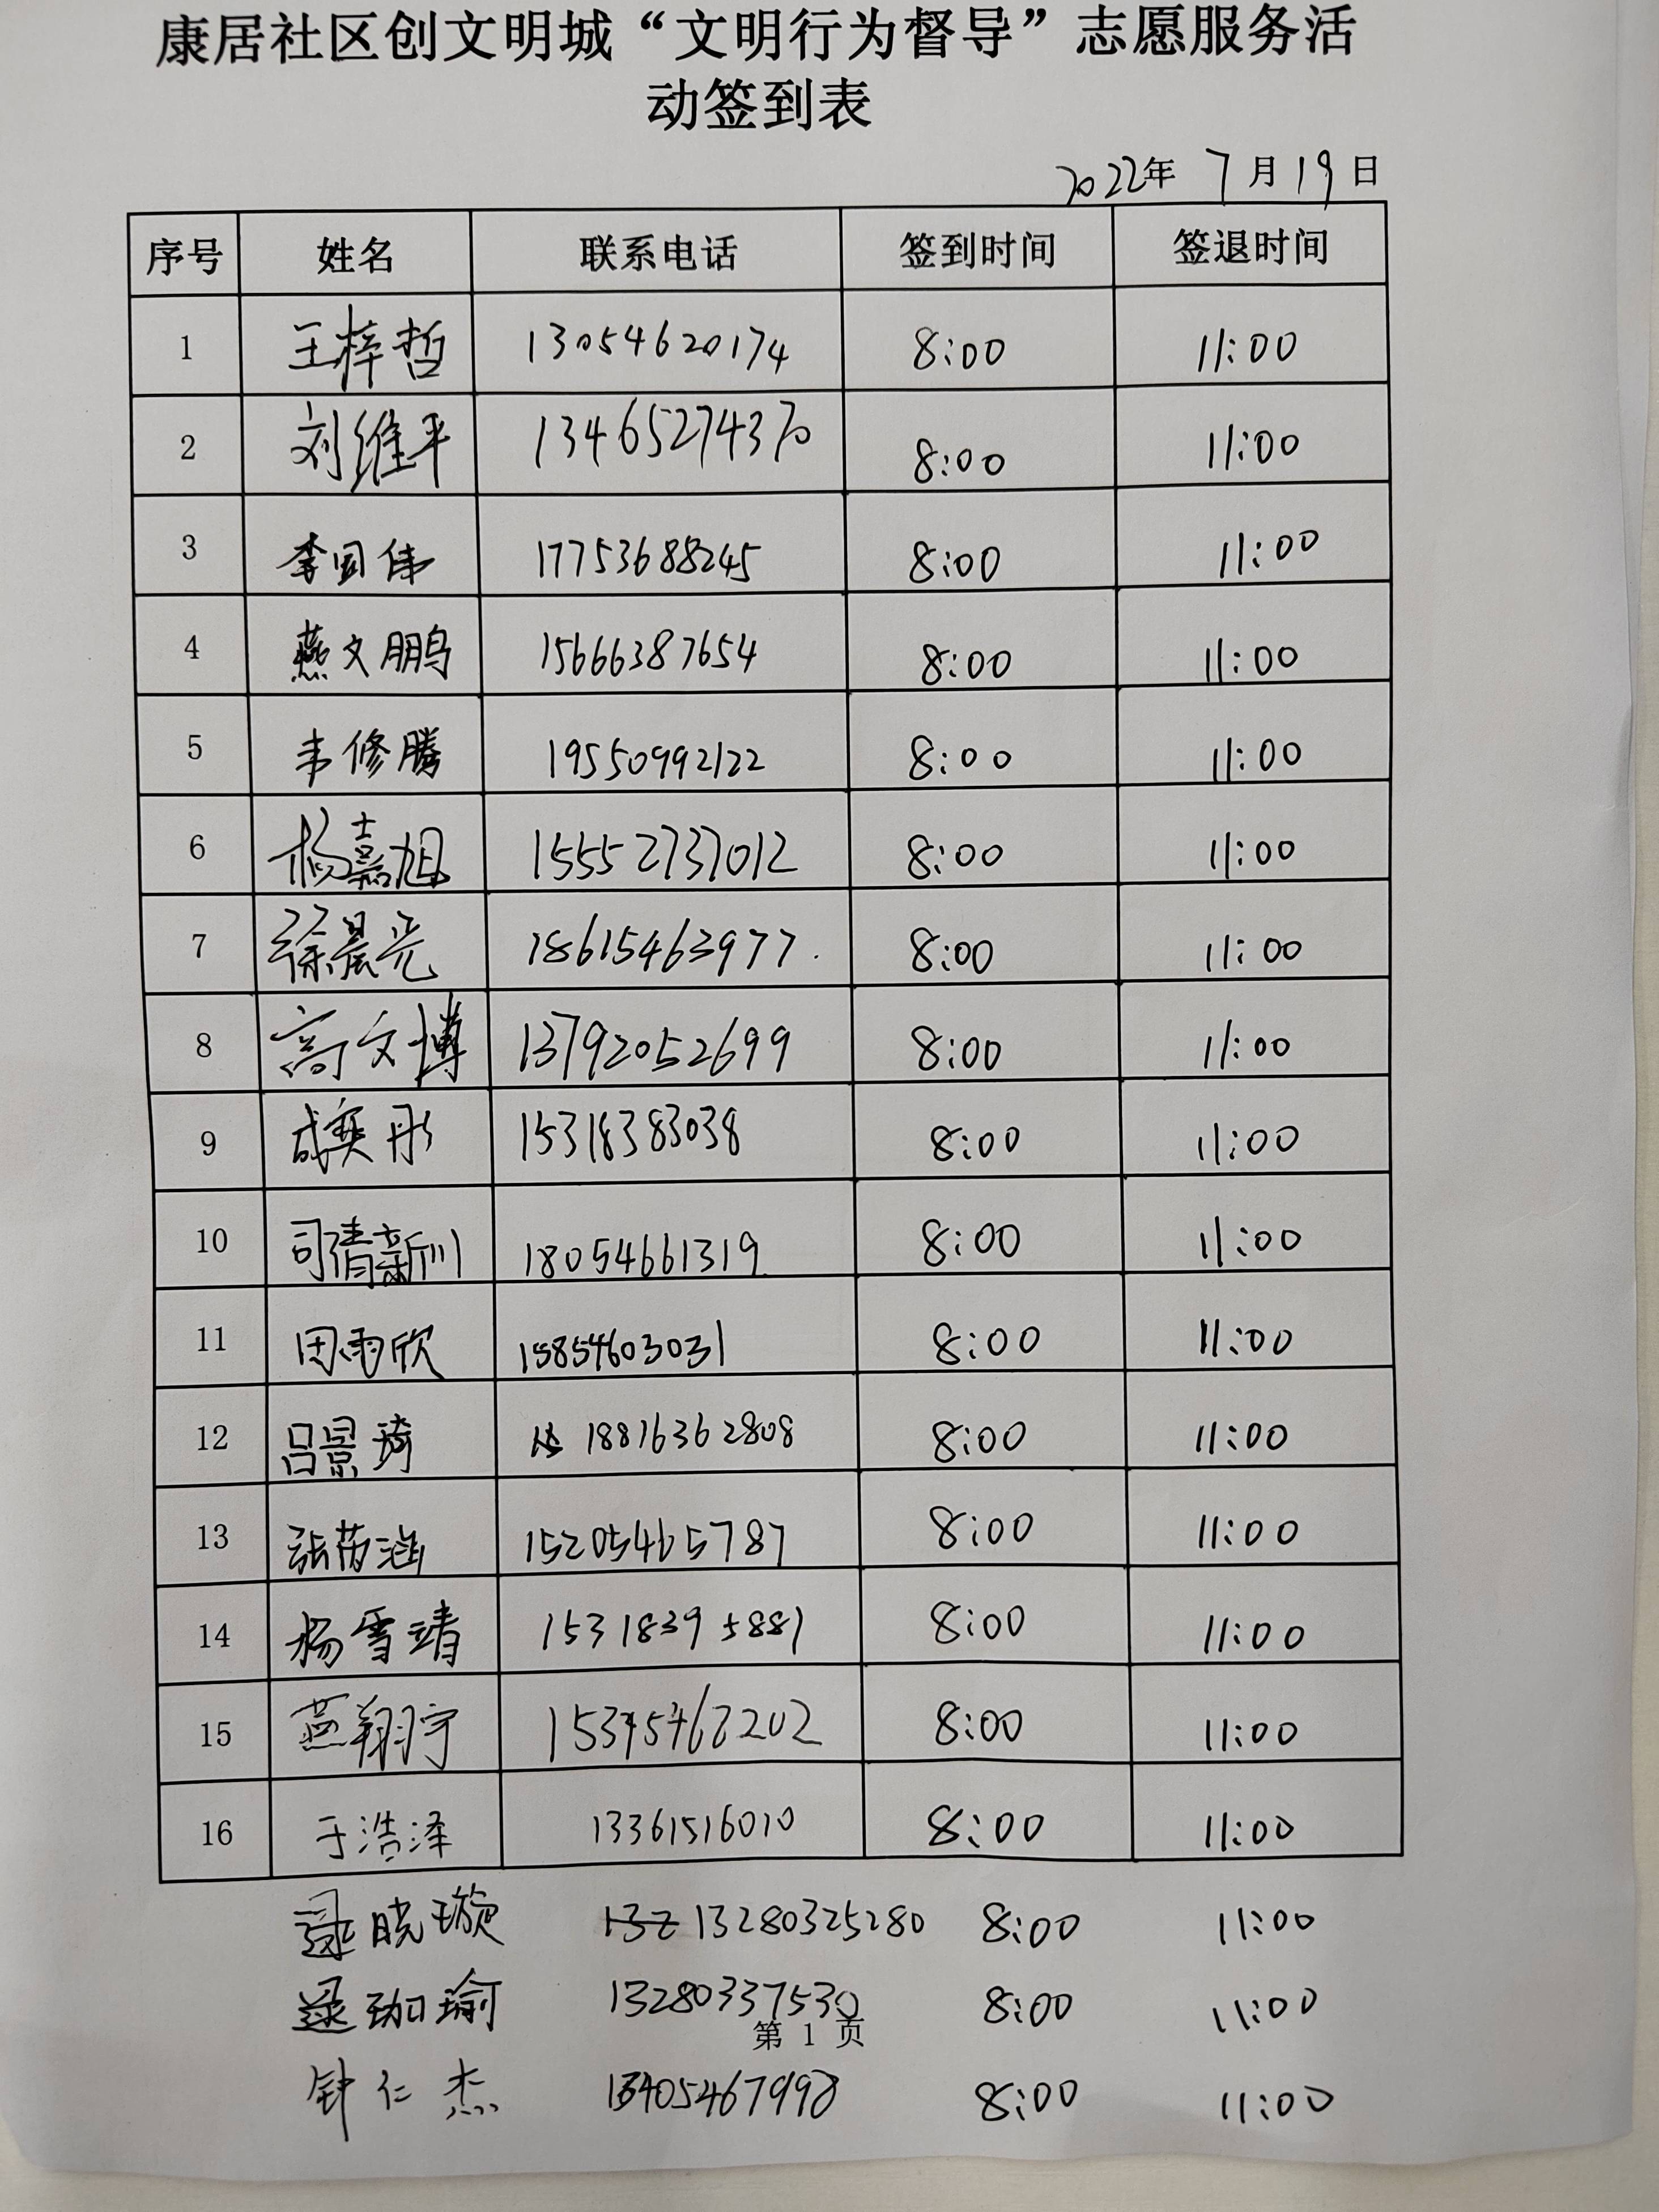 康居社区创文明城“文明行为督导”志愿服务活
动签到表
2022年 7月19日
序号 姓名 联系电话 签到时间 签退时间
1 王梓哲 13054620174 8:00 11:00
2 刘维平 13465274370 8:00 11:00
3 李国伟 17753688245 8:00 11:00
4 燕文鹏 15666387654 8:00 11:00
5 韦修腾 19550992122 8:00 11:00
6 杨嘉旭 15552737012 8:00 11:00
7 徐晨光 18615463977. 8:00 11:00
8 高文博 13792052699 8:00 11:00
9 成奕彤 15318383038 8:00 11:00
10 司清新川 18054661319 8:00 11:00
11 田雨欣 15854603031 8:00 11:00
12 吕景琦 18816362808 8:00 11:00
13 张芮涵 15205465787 8:00 11:00
14 杨雪靖 15318395881 8:00 11:00
15 燕翔宇 8:00 11:00
16 于浩泽 13361516010 8:00 11:00
逯晓璇 13280325280 8:00 11:00
逯珈瑜 13280337530 8:00 11:00
第 1 页
钟仁杰 13405467998 8:00 11:00